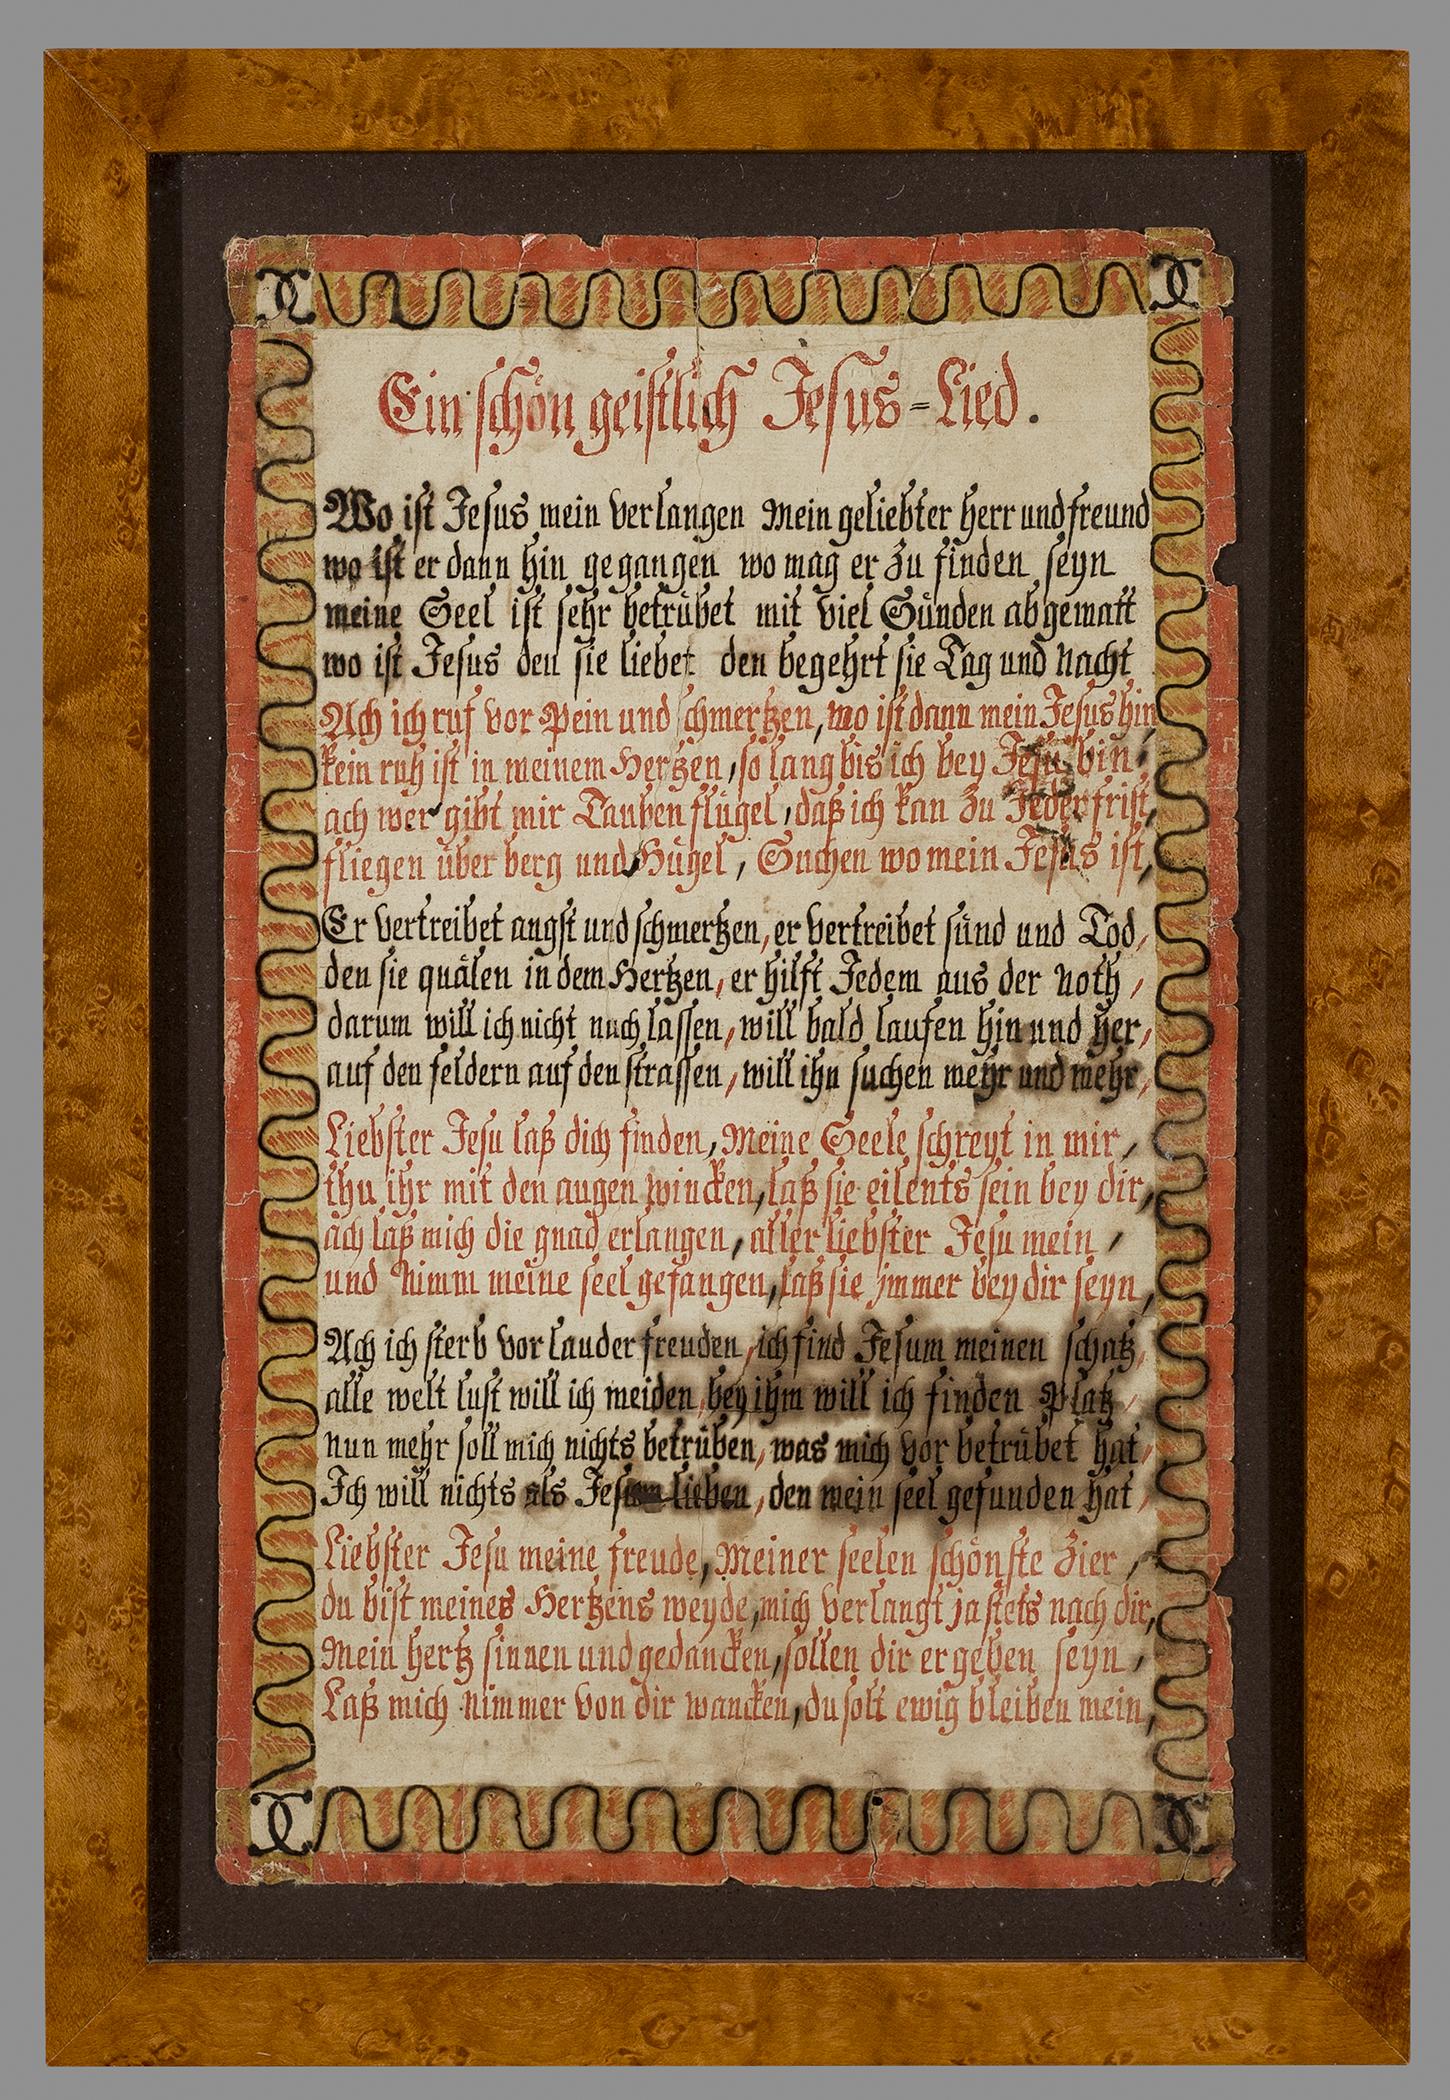 Ein schön geistlich Jesus-Lied.
Wo ist Jesus mein verlangen Mein geliebter herr und freund
wo ist er dann hin gegangen wo mag er zu finden seyn
meine Seel ist sehr betrübet mit viel Sünden abgematt
wo ist Jesus den sie liebet den begehrt sie Tag und Nacht
Ach ich ruf vor Pein und schmertzen, wo ist dann mein Jesus hin
kein ruh ist in meinem Hertzen, so lang bis ich bey Jesu bin,
ach wer gibt mir Tauben flügel, daß ich kan zu Jeder frist,
fliegen über berg und Hügel, Suchen wo mein Jesus ist,
Er vertreibet angst und schmertzen, er vertreibet sünd und Tod,
den sie quälen in dem Hertzen, er hilft Jedem aus der Noth,
darum will ich nicht nach lassen, will bald laufen hin und her,
auf den feldern auf den strassen, will ihn suchen mehr und mehr,
Liebster Jesu laß dich finden, Meine Seele schreyt in mir,
thu ihr mit den augen wincken, laß sie eilents sein bey dir,
ach laß mich die gnad erlangen, aller liebster Jesu mein,
und Nimm meine seel gefangen, laß sie jmmer bey dir seyn,
Ach ich sterb vor lauder freuden, ich find Jesum meinen schatz,
alle welt lust will ich meiden, bey ihm will ich finden Platz,
nun mehr soll mich nichts betrüben, was mich vor betrübet hat,
Ich will nichts als Jesum lieben, den mein seel gefunden hat,
Liebster Jesu meine freude, Meiner seelen schönste Zier,
du bist meines Hertzens weyde, mich verlangt ja stets nach dir,
Mein hertz sinnen und gedancken, sollen dir ergeben seyn,
Laß mich nimmer von dir wancken, du solt ewig bleiben mein,